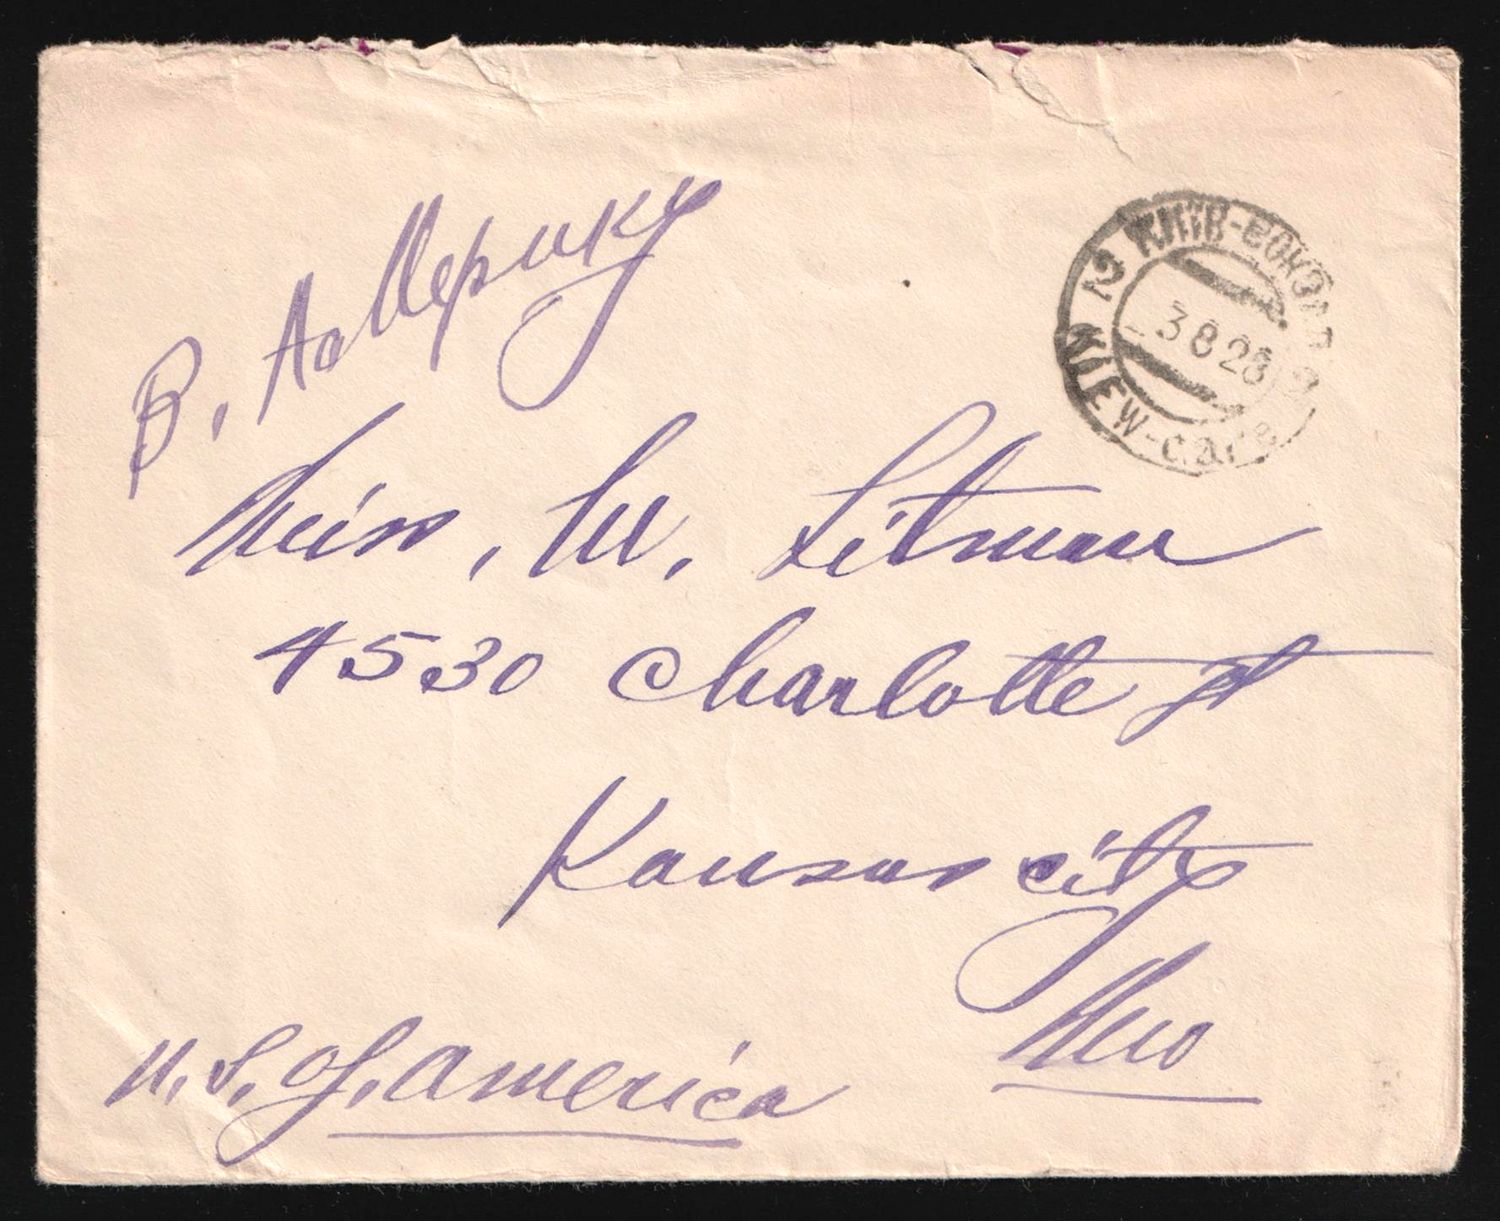 В. Америку
КИЇВ-ВОКЗАЛ
2
3 8 28
KIEW-GARE
Miss, M. Litman
4530 Charlotte st
Kansas city
Mo
U.S. of. America